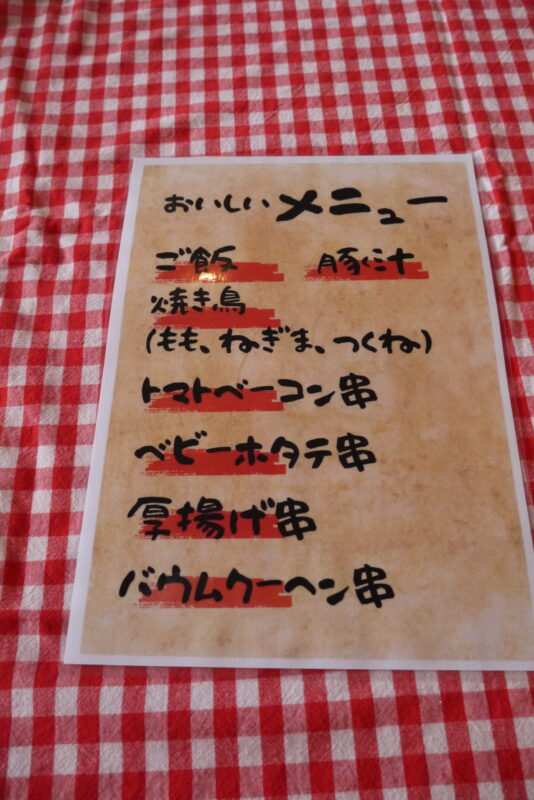 おいしいメニュー
ご飯 豚汁
焼き鳥
(もも、ねぎま、つくね)
トマトベーコン串
ベビーホタテ串
厚揚げ串
バウムクーヘン串